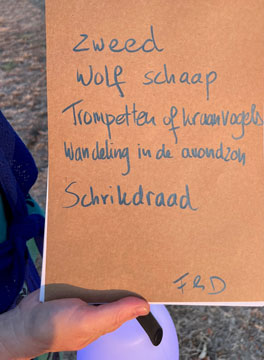 Zweed
Wolf schaap
Trompetten of kraanvogels
Wandeling in de avondzon
Schrikdraad
FRD